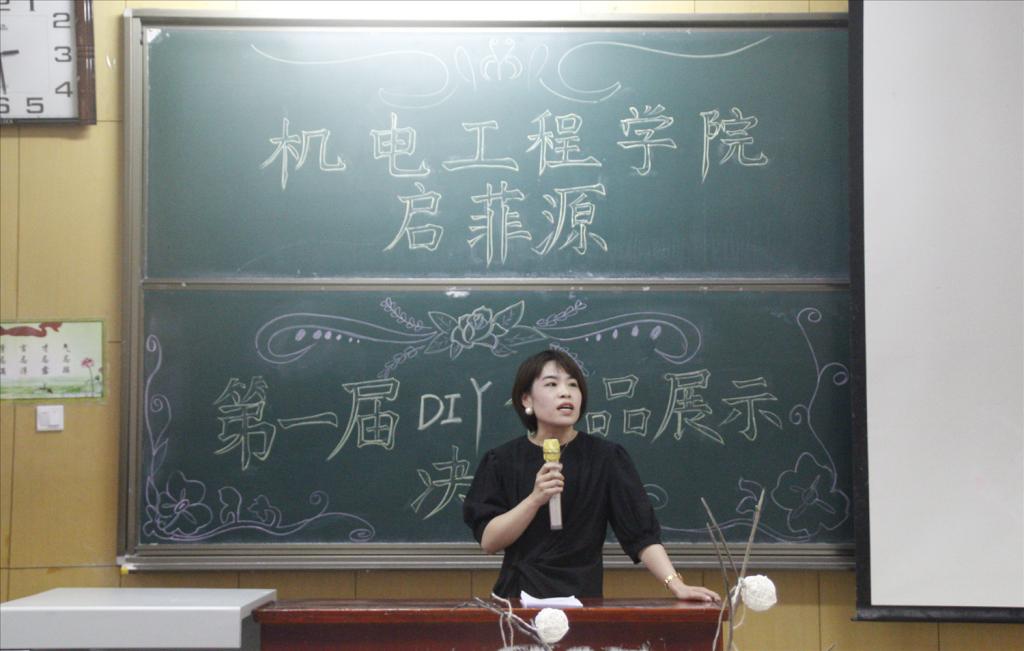 2
3
4
5
6
机电工程学院
启菲源
第一届DIY 品展示
决